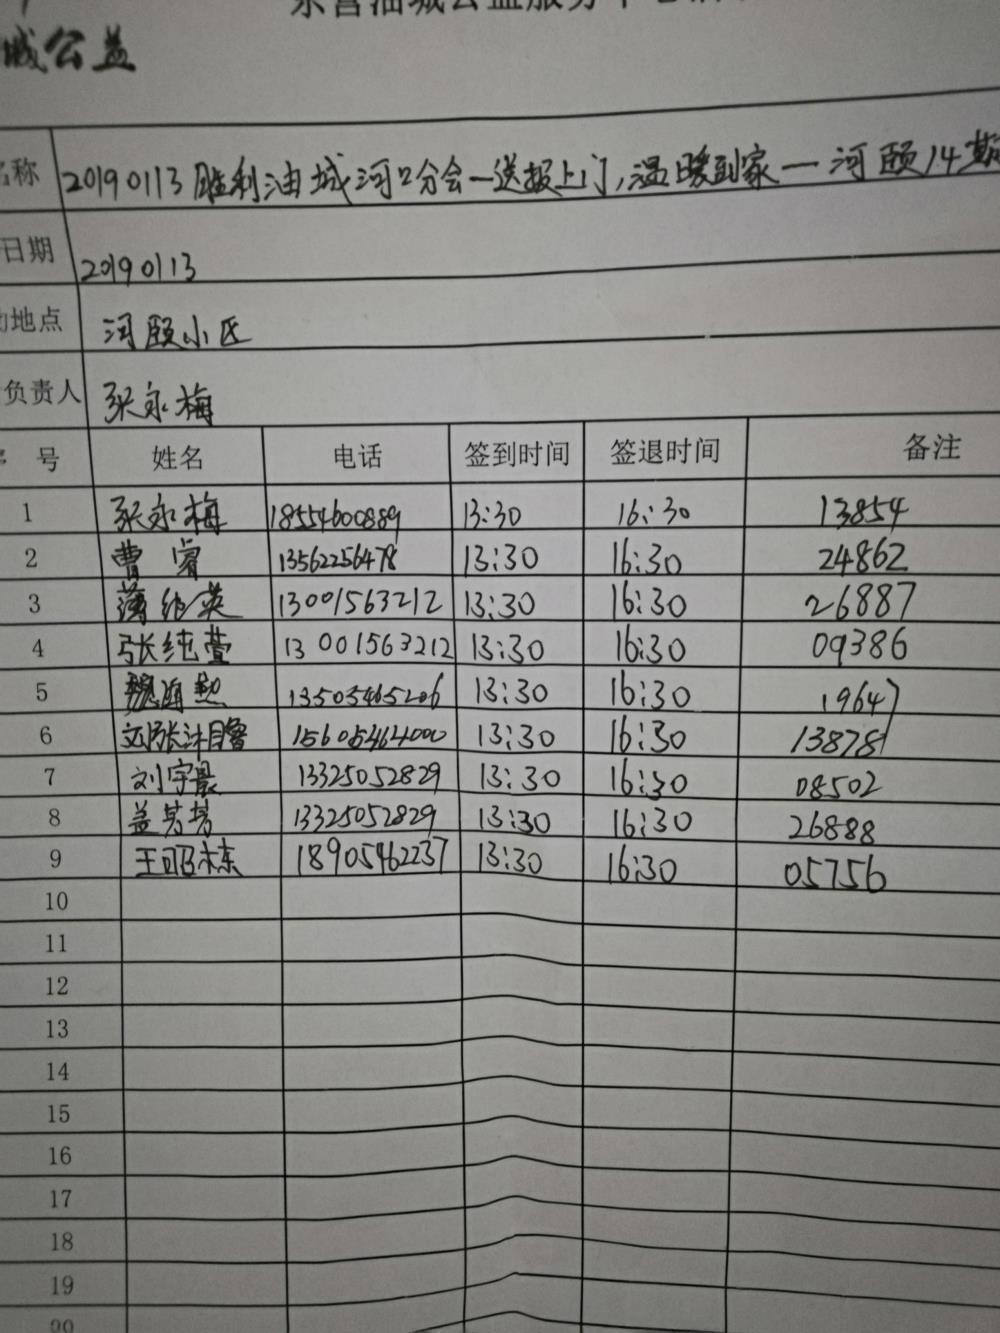 东营油城公益服务中心
城公益
名称 20190113胜利油城河口分会—送报上门,温暖到家—河颐14期
日期 20190113
动地点 河颐小区
负责人 张永梅
序号 姓名 电话 签到时间 签退时间 备注
1 张永梅 18554600889 13:30 16:30 13854
2 曹睿 13562256478 13:30 16:30 24862
3 蒲艳英 13001563212 13:30 16:30 26887
4 张纯萱 13001563212 13:30 16:30 09386
5 魏海 13505465206 13:30 16:30 19647
6 15605464000 13:30 16:30 13878
7 刘宇晨 13325052829 13:30 16:30 08502
8 盖芳芳 13325052829 13:30 16:30 26888
9 王昭栋 18905462237 13:30 16:30 05756
10
11
12
13
14
15
16
17
18
19
20